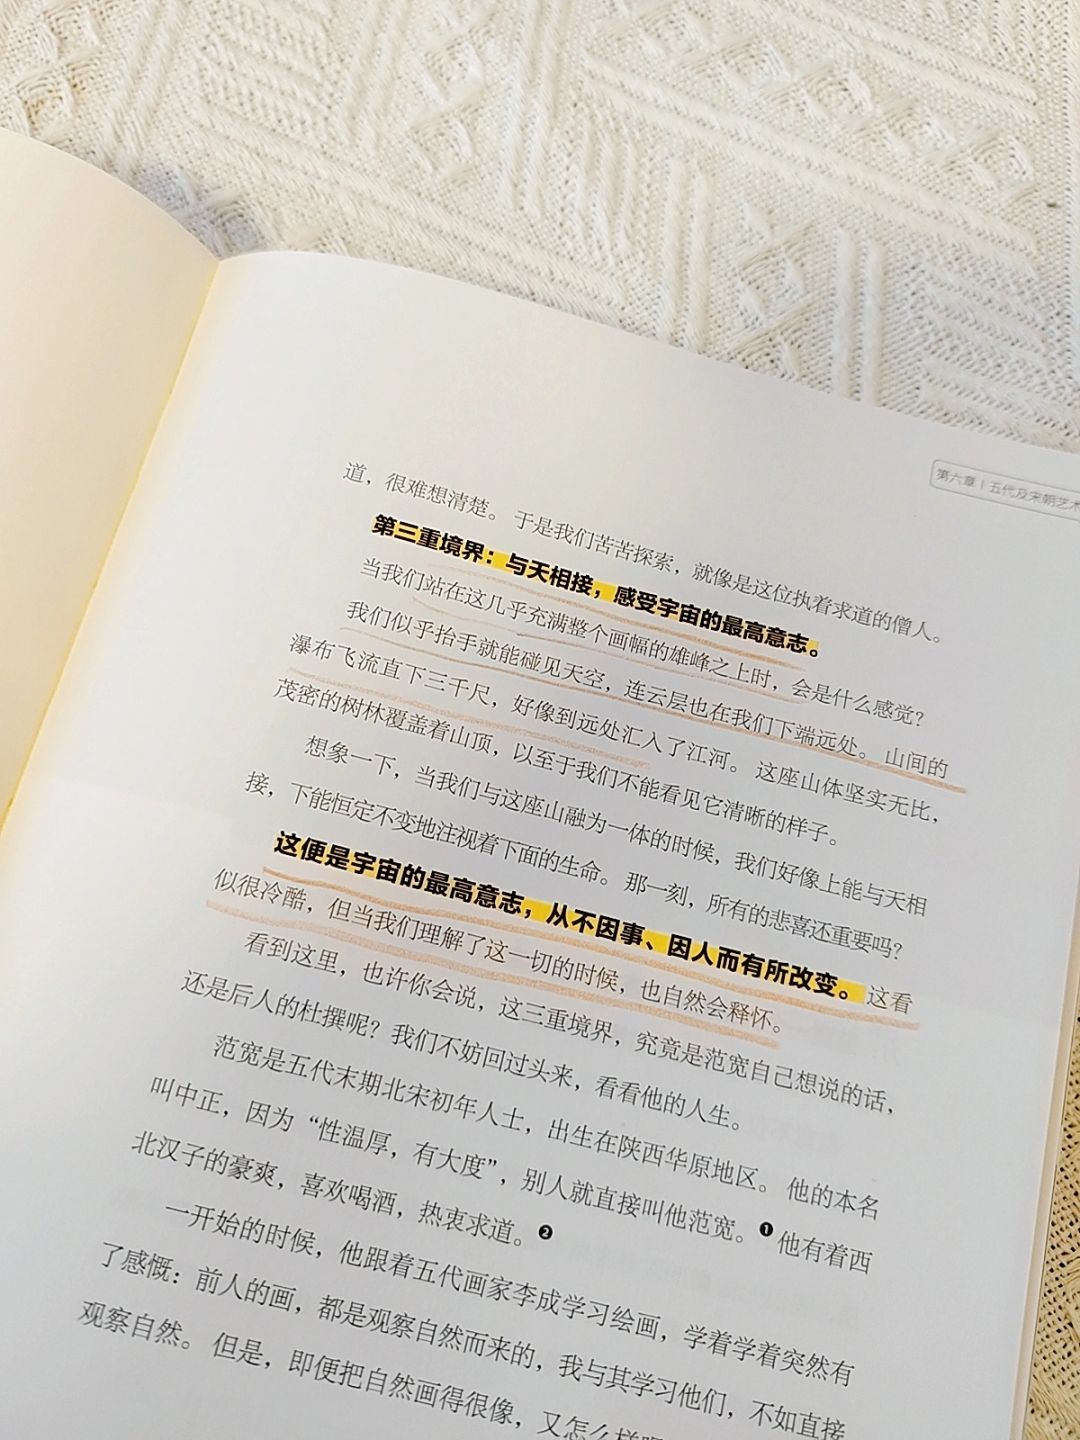 第六章 | 五代及宋朝艺术
道，很难想清楚。于是我们苦苦探索，就像是这位执着求道的僧人。
第三重境界：与天相接，感受宇宙的最高意志。
当我们站在这几乎充满整个画幅的雄峰之上时，会是什么感觉？
我们似乎抬手就能碰见天空，连云层也在我们下端远处。山间的
瀑布飞流直下三千尺，好像到远处汇入了江河。这座山体坚实无比，
茂密的树林覆盖着山顶，以至于我们不能看见它清晰的样子。
想象一下，当我们与这座山融为一体的时候，我们好像上能与天相
接，下能恒定不变地注视着下面的生命。那一刻，所有的悲喜还重要吗？
这便是宇宙的最高意志，从不因事、因人而有所改变。这看
似很冷酷，但当我们理解了这一切的时候，也自然会释怀。
看到这里，也许你会说，这三重境界，究竟是范宽自己想说的话，
还是后人的杜撰呢？我们不妨回过头来，看看他的人生。
范宽是五代末期北宋初年人士，出生在陕西华原地区。他的本名
叫中正，因为“性温厚，有大度”，别人就直接叫他范宽。❶他有着西
北汉子的豪爽，喜欢喝酒，热衷求道。❷
一开始的时候，他跟着五代画家李成学习绘画，学着学着突然有
了感慨：前人的画，都是观察自然而来的，我与其学习他们，不如直接
观察自然。但是，即便把自然画得很像，又怎么样